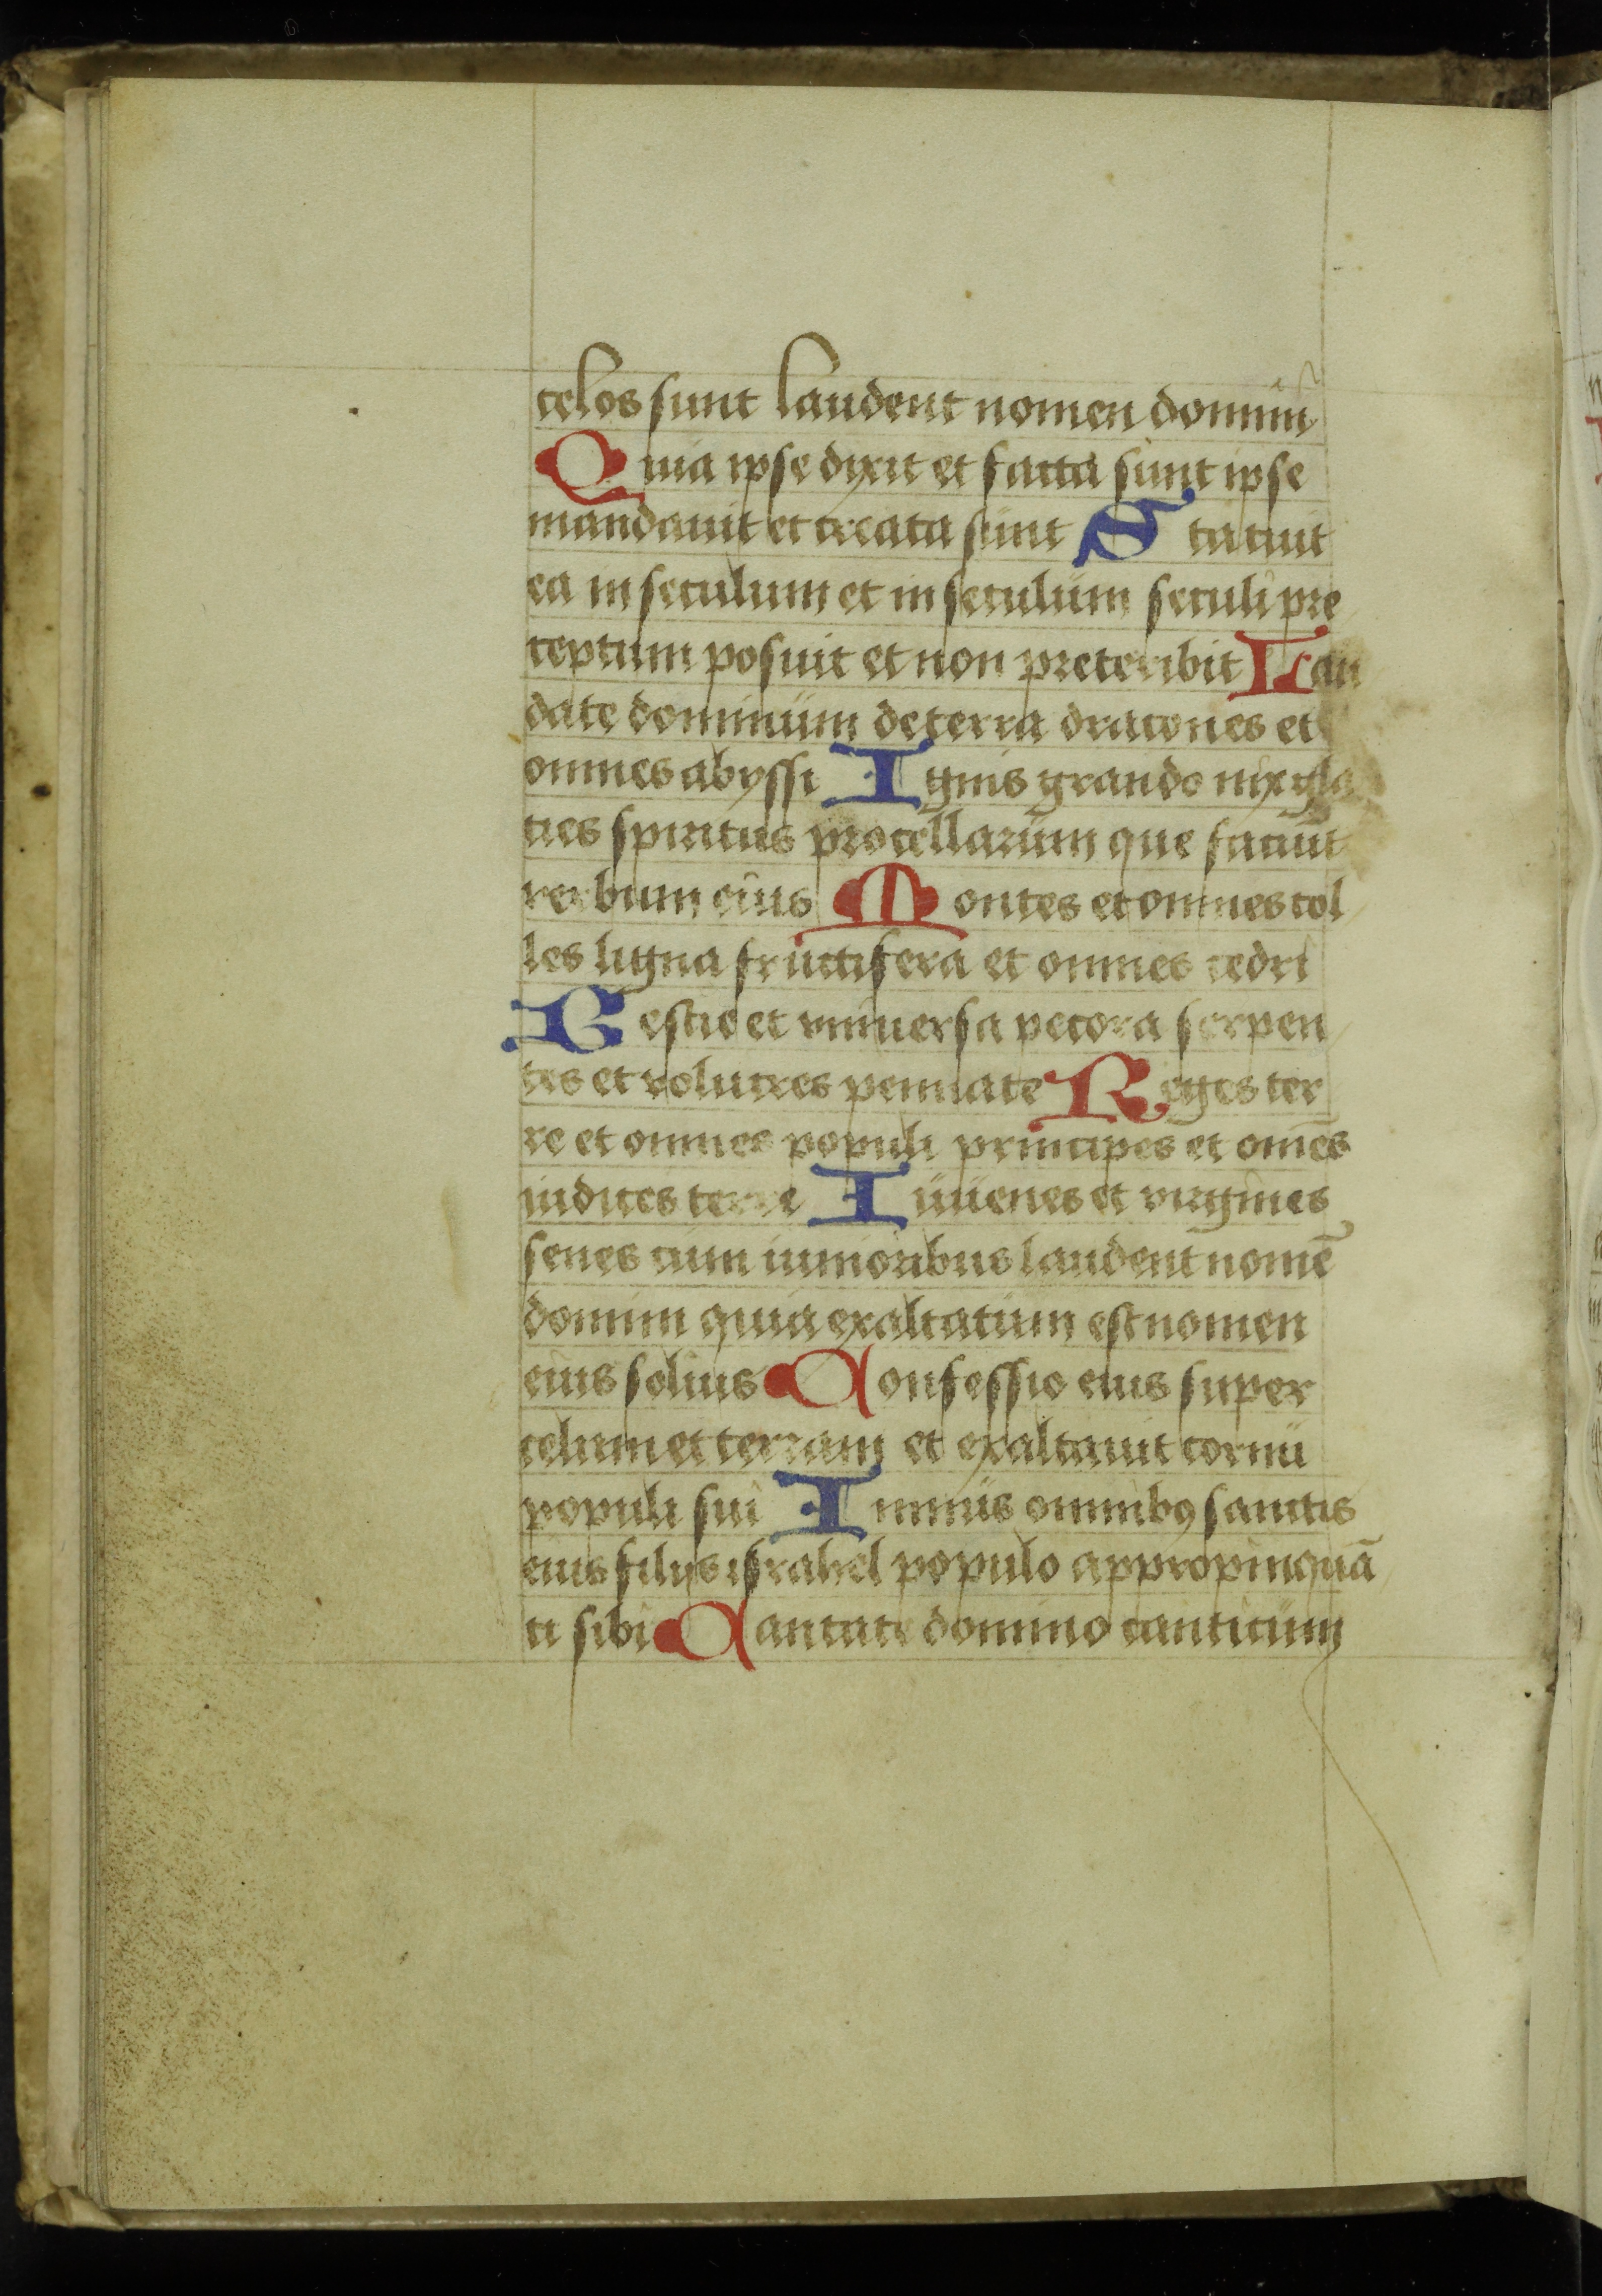 celos sunt laudent nomen domini
Quia ipse dixit et facta sunt ipse
mandauit et creata sunt Statuit
ea in seculum et in seculum seculi pre
ceptum posuit et non preteribit Lau
date dominum de terra dracones et
omnes abyssi Ignis grando nix gla
cies spiritus procellarum que faciūt
verbum eius Montes et omnes col
les ligna fructifera et omnes cedri
Bestie et vniuersa pecora serpen
tes et volucres pennate Reges ter
re et omnes populi principes et om̄es
iudices terre Iuuenes et virgines
senes cum iunioribus laudent nomē
domini quia exaltatum est nomen
eius solius Confessio eius super
celum et terram et exaltauit cornu
populi sui Imnus omnibꝰ sanctis
eius filijs israhel populo appropinquā
ti sibi Cantate domino canticum